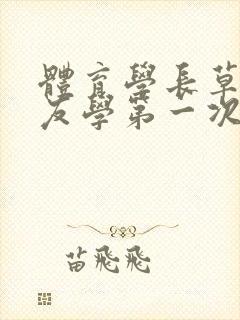 體育學長草
友學第一次
苗飛飛